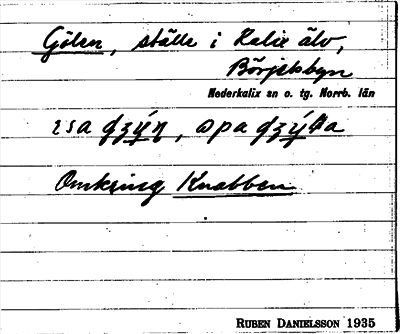 Gölen, ställe i Kalix älv,
Börjelsbyn
Nederkalix sn o. tg. Norrb. län
Omkring Knabben
RUBEN DANIELSSON 1935